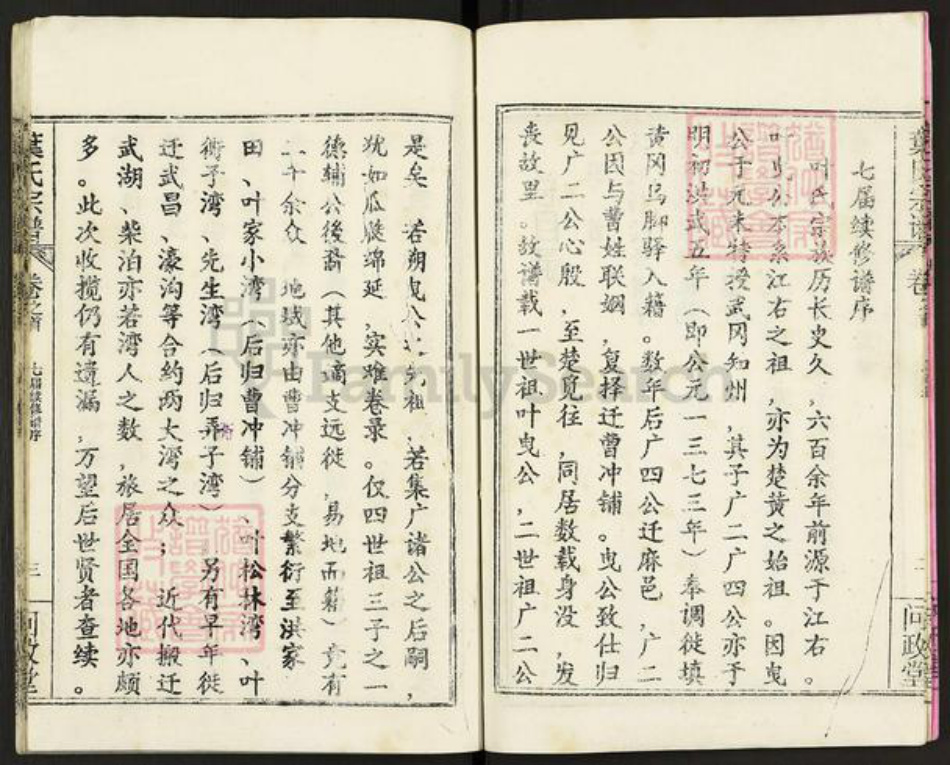 七届续修谱序
叶氏宗族历长史久，六百余年前源于江右。
叶曳公本系江右之祖，亦为楚黄之始祖。因曳
公于元末特授武冈知州，其子广二广四公亦于
明初洪武五年（即公元一三七三年）奉调徙填
黄冈马脚驿入籍。数年后广四公迁麻邑，广二
公因与曹姓联姻，复择迁曹冲铺。曳公致仕归
见广二公心殷，至楚觅往，同居数载身没，发
丧故里。故谱载一世祖叶曳公，二世祖广二公
是矣。若朔曳公之先祖，若集广诸公之后嗣，
犹如瓜瓞绵延，实难卷录。仅四世祖三子之一
德辅公後裔（其他谪支远徙，易地而籍）竟有
二千余众。地域亦由曹冲铺分支繁衍至洪家
田、叶家小湾（后归曹冲铺）、叶松林湾、叶
衖子湾、先生湾（后归弄子湾）。另有早年徙
迁武昌、濠沟等合约两大湾之众；近代搬迁
武湖、柴泊亦若湾人之数，旅居全国各地亦颇
多。此次收揽仍有遗漏，万望后世贤者查续。
葉氏宗譜
卷之首
七届续修谱序
三
问政堂
FamilySearch